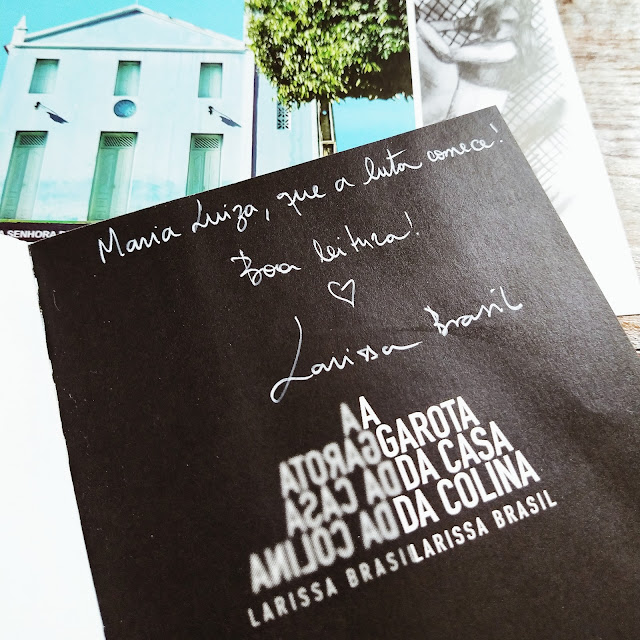 A SENHORA
Maria Luiza, que a luta comece!
Boa leitura!
♡
Larissa Brasil
A
GAROTA
DA CASA
DA COLINA
LARISSA BRASIL
A
GAROTA
DA CASA
DA COLINA
LARISSA BRASIL